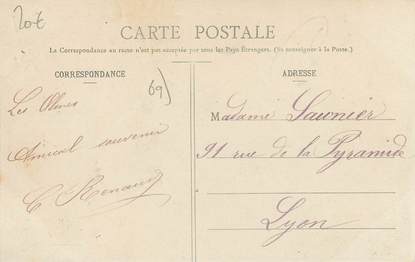 20€
CARTE POSTALE
La Correspondance au recto n'est pas acceptée par tous les Pays Étrangers. (Se renseigner à la Poste.)
CORRESPONDANCE
69)
Les Olmes
Amical souvenir
C Renaud
ADRESSE
Madame Saunier
91 rue de la Pyramide
Lyon